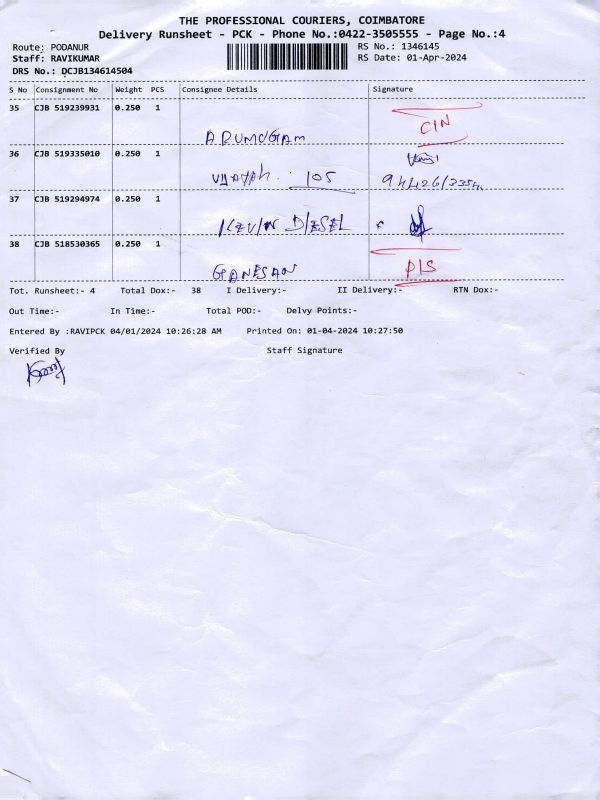 THE PROFESSIONAL COURIERS, COIMBATORE
Delivery Runsheet - PCK - Phone No.:0422-3505555 - Page No.:4
Route: PODANUR RS No.: 1346145
Staff: RAVIKUMAR RS Date: 01-Apr-2024
DRS No.: DCJB134614504
S No Consignment No Weight PCS Consignee Details Signature
35 CJB 519239931 0.250 1 ARUMUGAM C/N
36 CJB 519335010 0.250 1 105
37 CJB 519294974 0.250 1 KEVIN DIESEL
38 CJB 518530365 0.250 1 GANESAN D/S
Tot. Runsheet:- 4 Total Dox:- 38 I Delivery:- II Delivery:- RTN Dox:-
Out Time:- In Time:- Total POD:- Delvy Points:-
Entered By :RAVIPCK 04/01/2024 10:26:28 AM Printed On: 01-04-2024 10:27:50
Verified By Staff Signature